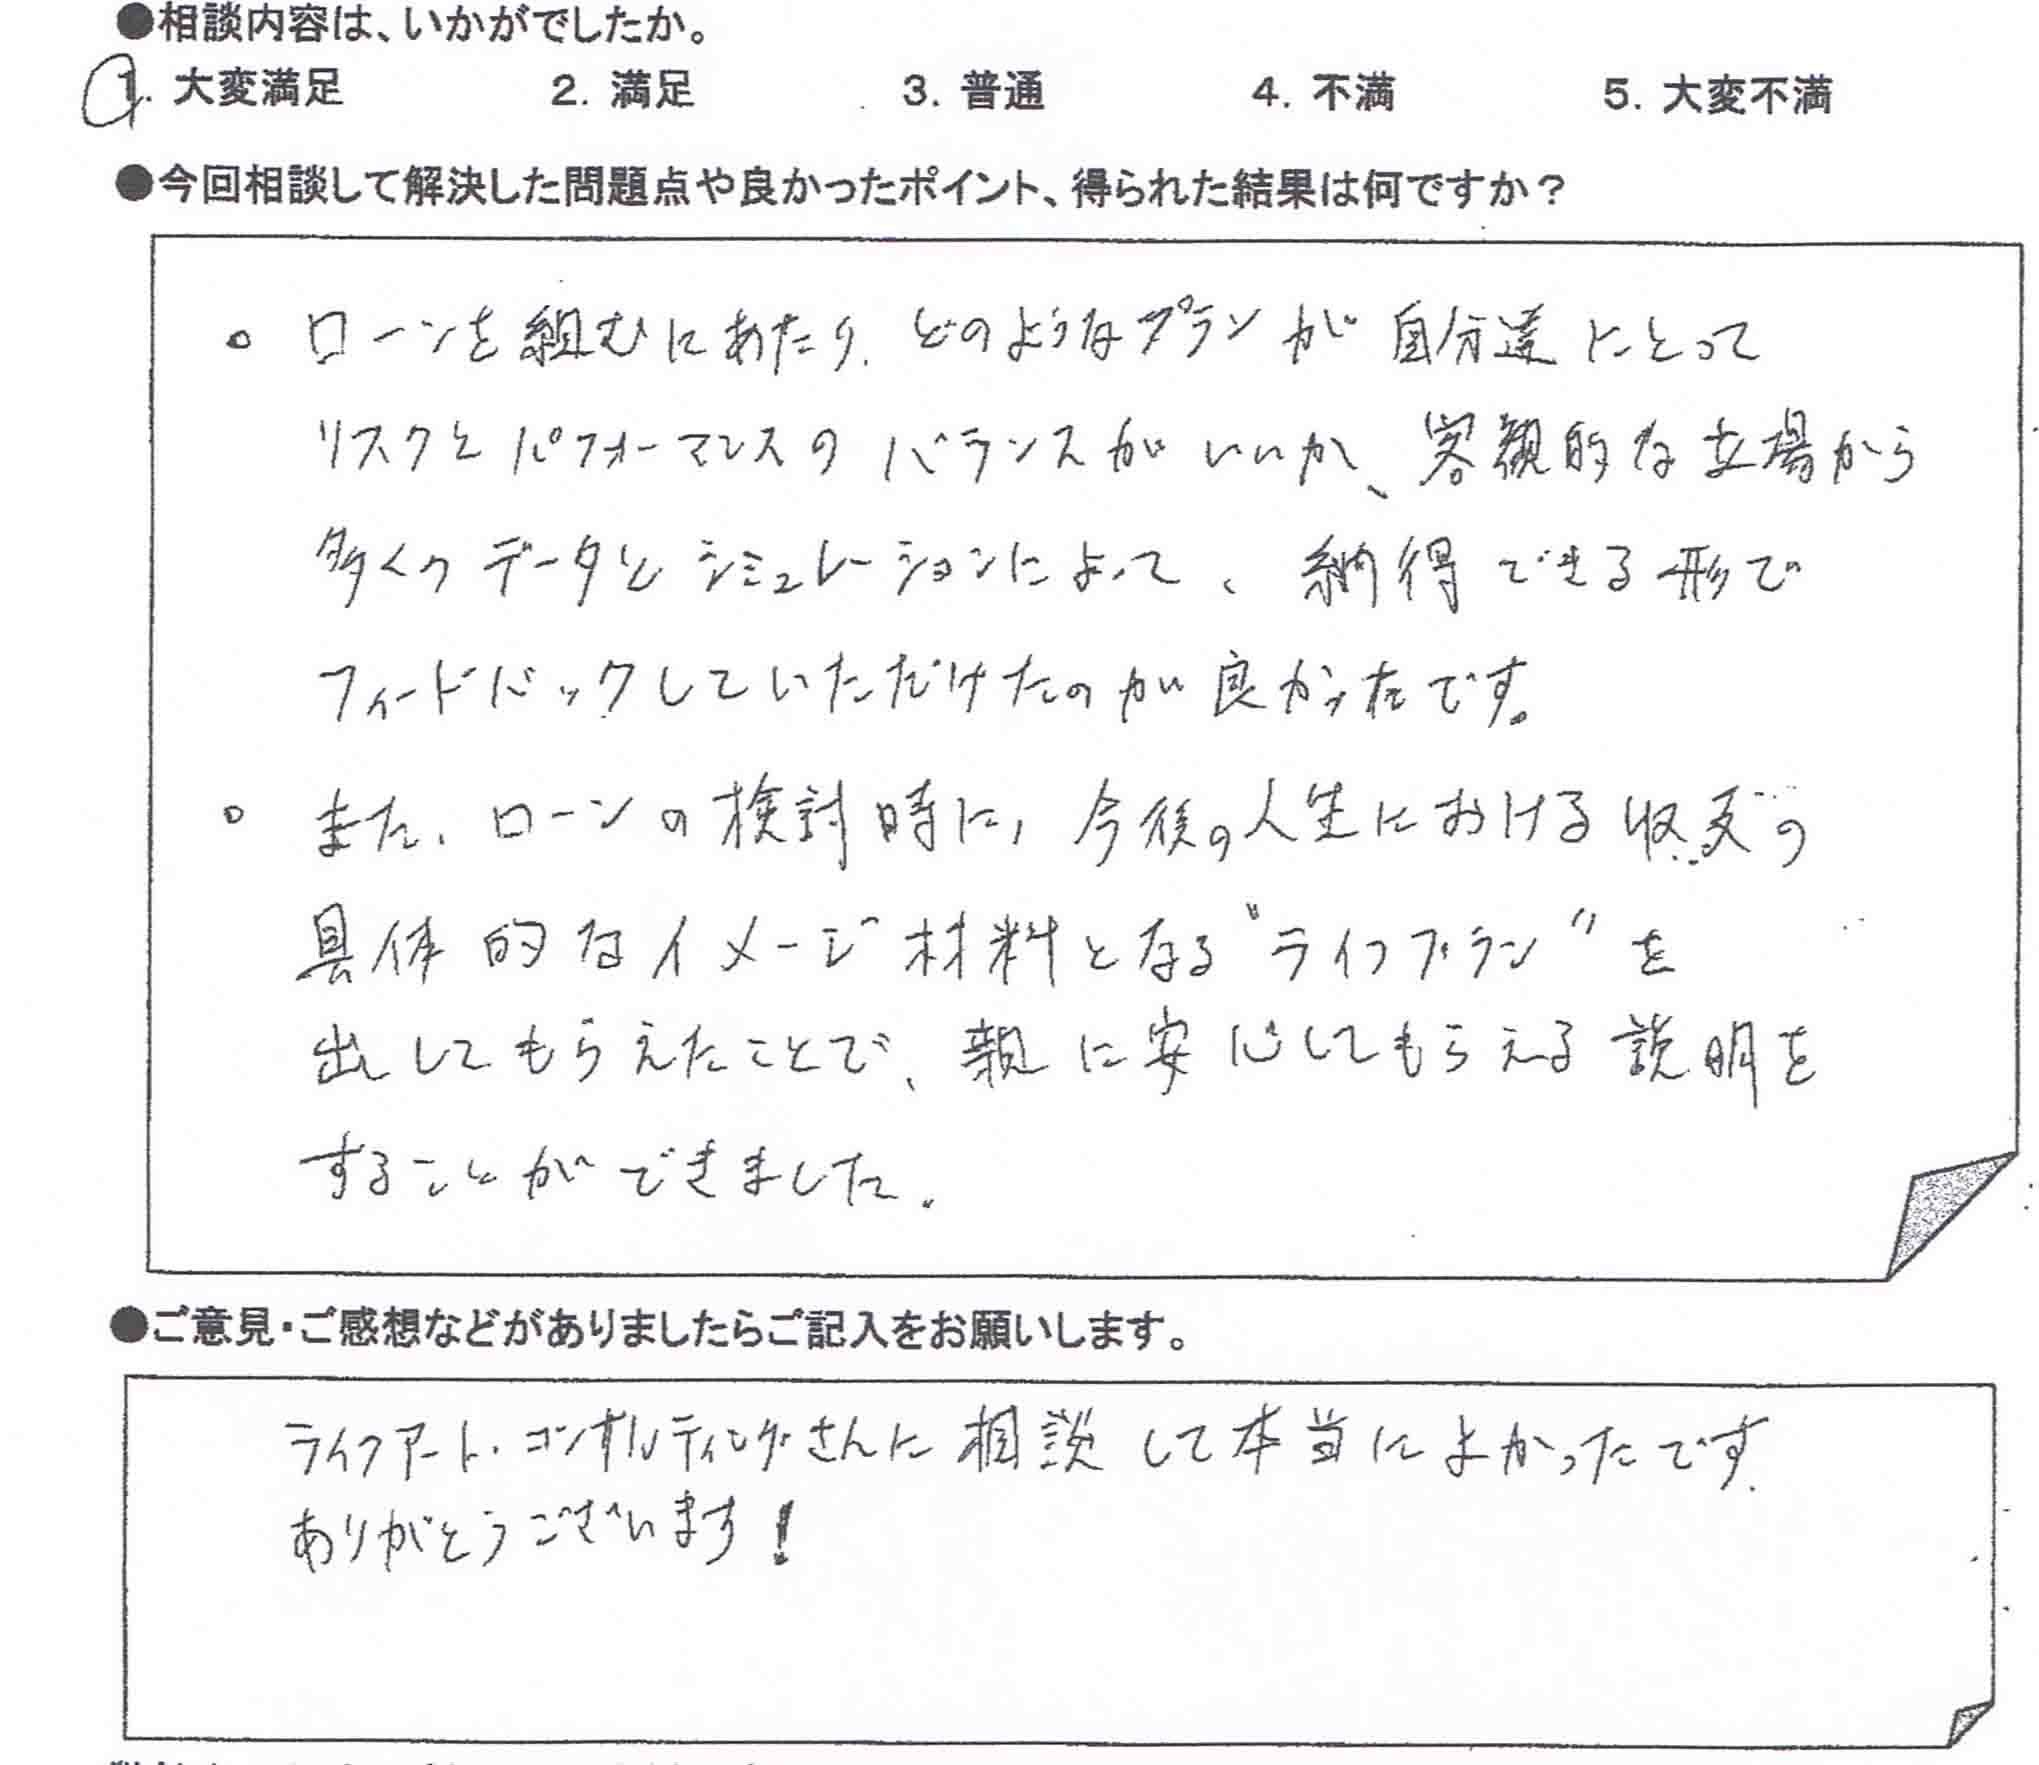 ●相談内容は、いかがでしたか。
1. 大変満足 2. 満足 3. 普通 4. 不満 5. 大変不満
●今回相談して解決した問題点や良かったポイント、得られた結果は何ですか？
。ローンを組むにあたり、どのようなプランが自分達にとって
リスクとパフォーマンスのバランスがいいか、客観的な立場から
多くのデータとシミュレーションによって、納得できる形で
フィードバックしていただけたのが良かったです。
。また、ローンの検討時に、今後の人生における収支の
具体的なイメージ材料となる"ライフプラン"を
出してもらえたことで、親に安心してもらえる説明を
することができました。
●ご意見・ご感想などがありましたらご記入をお願いします。
ライフアート・コンサルティングさんに相談して本当によかったです。
ありがとうございます！